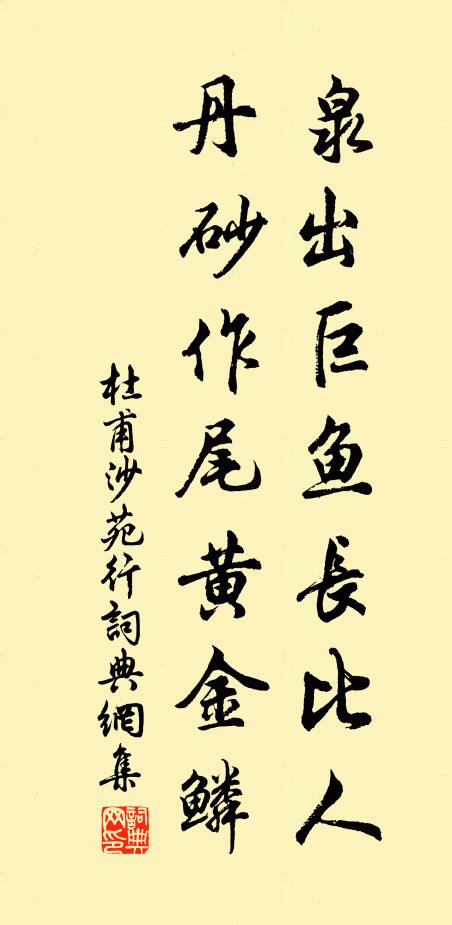 泉出巨鱼長比人
丹砂作尾黄金鱗
杜甫沙苑行詞典網集
詞典網印